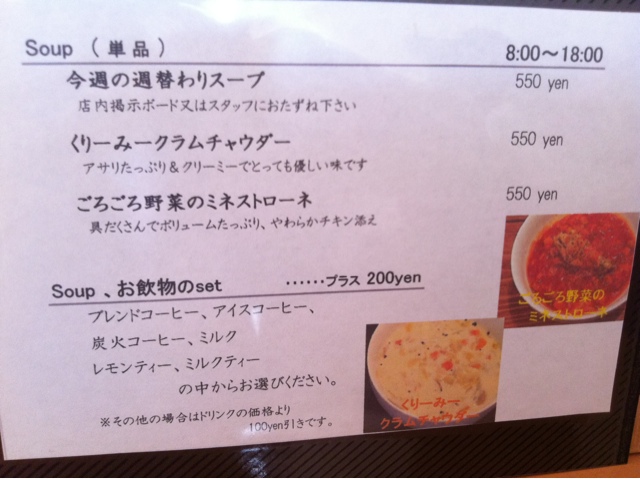 Soup (単品) 8:00～18:00
今週の週替わりスープ 550 yen
店内掲示ボード又はスタッフにおたずね下さい
くりーみークラムチャウダー 550 yen
アサリたっぷり＆クリーミーでとっても優しい味です
ごろごろ野菜のミネストローネ 550 yen
具だくさんでボリュームたっぷり、やわらかチキン添え
ごろごろ野菜の
ミネストローネ
Soup 、お飲物のset ……プラス 200yen
ブレンドコーヒー、アイスコーヒー、
炭火コーヒー、ミルク
レモンティー、ミルクティー
の中からお選びください。
※その他の場合はドリンクの価格より
100yen引きです。
くりーみー
クラムチャウダー